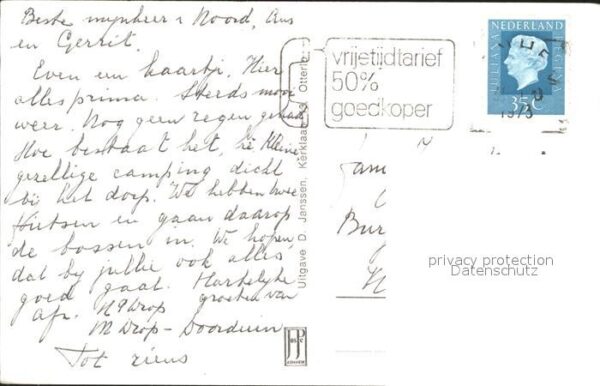 Beste mijnheer v Noord, Ans
en Gerrit.
Even een kaartje. Hier
alles prima. Steeds mooi
weer. Nog geen regen gehad
Hoe bestaat het, hè Kleine
gezellige camping dicht
bij het dorp. We hebben twee
fietsen en gaan daarop
de bossen in. We hopen,
dat bij jullie ook alles
goed gaat. Hartelijke
groeten van
Afz.
M Drop - Doorduin
Tot ziens
Uitgave D. Janssen, Kerklaan Otterlo
vrijetijdtarief
50%
goedkoper
NEDERLAND
JULIANA REGINA
35c
1973
Fam
Bur
privacy protection
Datenschutz